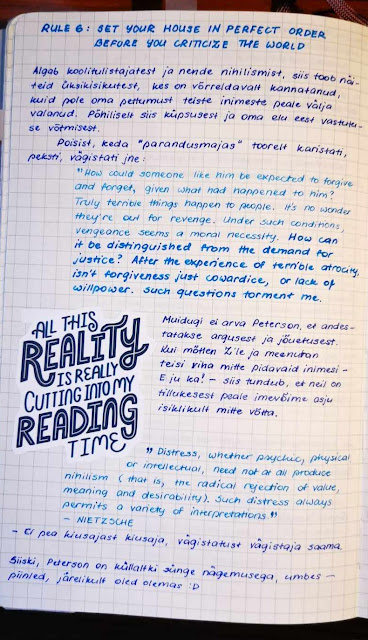 RULE 6: SET YOUR HOUSE IN PERFECT ORDER
BEFORE YOU CRITICIZE THE WORLD
Algab koolitulistajatest ja nende nihilismist, siis toob näi-
teid üksikisikutest, kes on võrreldavalt kannatanud,
kuid pole oma pettumust teiste inimeste peale välja
valanud. Põhiliselt siis küpsusest ja oma elu eest vastutu-
se võtmisest.
Poisist, keda "parandusmajas" toorelt karistati,
peksti, vägistati jne:
"How could someone like him be expected to forgive
and forget, given what had happened to him?
Truly terrible things happen to people. It's no wonder
they're out for revenge. Under such conditions,
vengeance seems a moral necessity. How can
it be distinguished from the demand for
justice? After the experience of terrible atrocity,
isn't forgiveness just cowardice, or lack of
willpower. Such questions torment me.
ALL THIS
REALITY
IS REALLY
CUTTING INTO MY
READING
TIME
Muidugi ei arva Peterson, et andes-
tatakse argusest ja jõuetusest.
Kui mõtlen Z'le ja meenutan
teisi viha mitte pidavaid inimesi -
E ju ka! - siis tundub, et neil on
tillukesest peale imevõime asju
isiklikult mitte võtta.
" Distress, whether psychic, physical
or intellectual, need not at all produce
nihilism (that is, the radical rejection of value,
meaning and desirability). Such distress always
permits a variety of interpretations."
- NIETZSCHE
- Ei pea kiusajast kiusaja, vägistatust vägistaja saama.
Siiski, Peterson on küllaltki sünge nägemusega, umbes -
piinled, järelikult oled olemas :D